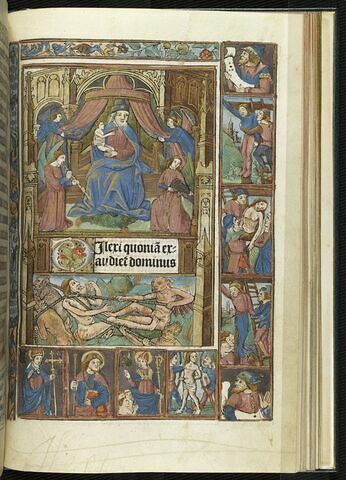 Dilexi quoniā ex-
audiet dominus